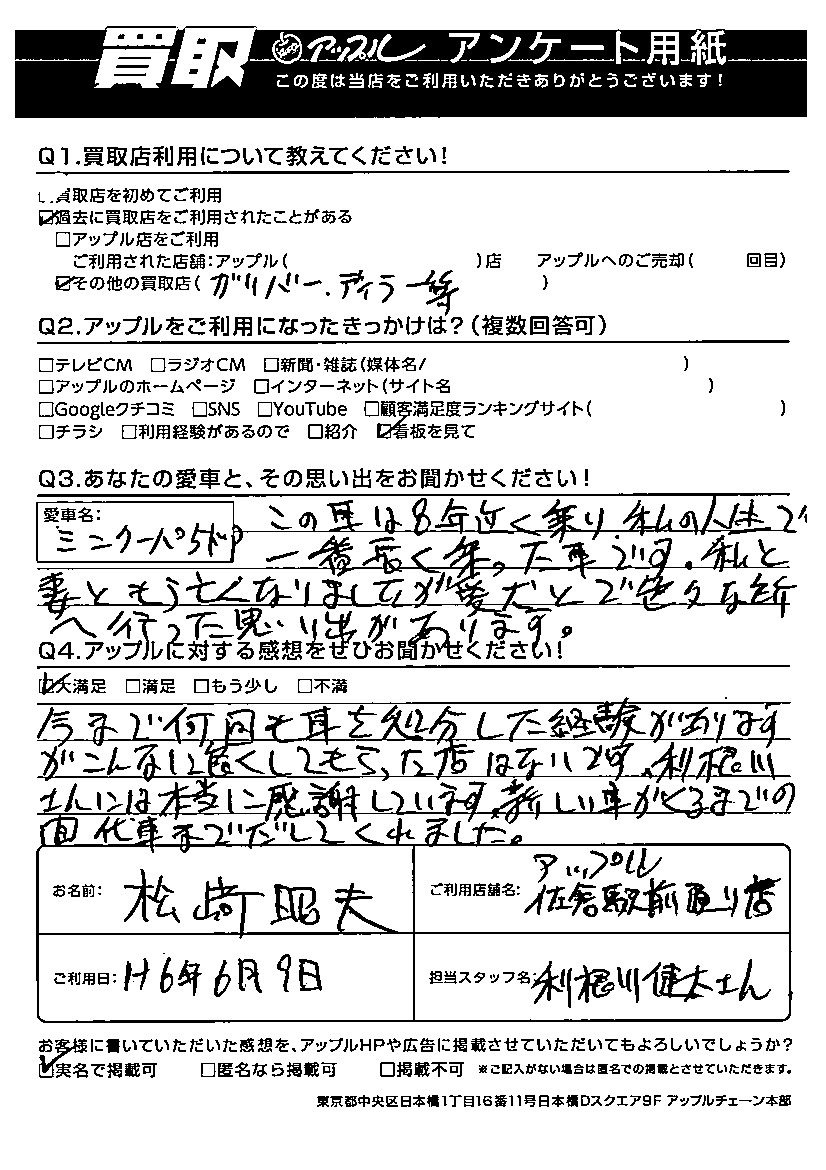 買取 アップル アンケート用紙
この度は当店をご利用いただきありがとうございます！
Q1.買取店利用について教えてください！
□買取店を初めてご利用
☑過去に買取店をご利用されたことがある
□アップル店をご利用
ご利用された店舗：アップル（ ）店 アップルへのご売却（ 回目）
☑その他の買取店（ ガリバー．ディラー等 ）
Q2.アップルをご利用になったきっかけは？（複数回答可）
□テレビCM □ラジオCM □新聞・雑誌（媒体名/ ）
□アップルのホームページ □インターネット（サイト名 ）
□Googleクチコミ □SNS □YouTube □顧客満足度ランキングサイト（ ）
□チラシ □利用経験があるので □紹介 ☑看板を見て
Q3.あなたの愛車と、その思い出をお聞かせください！
愛車名：
ミニクーパ5ドア
この車は8年近く乗り、私の人生で
一番長く乗った車です。私と
妻ともう亡くなりましたが愛犬とで色々な所
へ行った思い出があります。
Q4.アップルに対する感想をぜひお聞かせください！
☑大満足 □満足 □もう少し □不満
今まで何回も車を処分した経験があります
がこんなに良くしてもらった店はないです、利根川
さんには本当に感謝しています、新しい車がくるまでの
間代車までだしてくれました。
お名前： 松崎昭夫
ご利用店舗名： アップル
佐倉駅前通り店
ご利用日： H6年6月9日
担当スタッフ名： 利根川健太さん
お客様に書いていただいた感想を、アップルHPや広告に掲載させていただいてもよろしいでしょうか？
☑実名で掲載可 □匿名なら掲載可 □掲載不可 ※ご記入がない場合は匿名での掲載とさせていただきます。
東京都中央区日本橋1丁目16番11号日本橋Dスクエア9F アップルチェーン本部